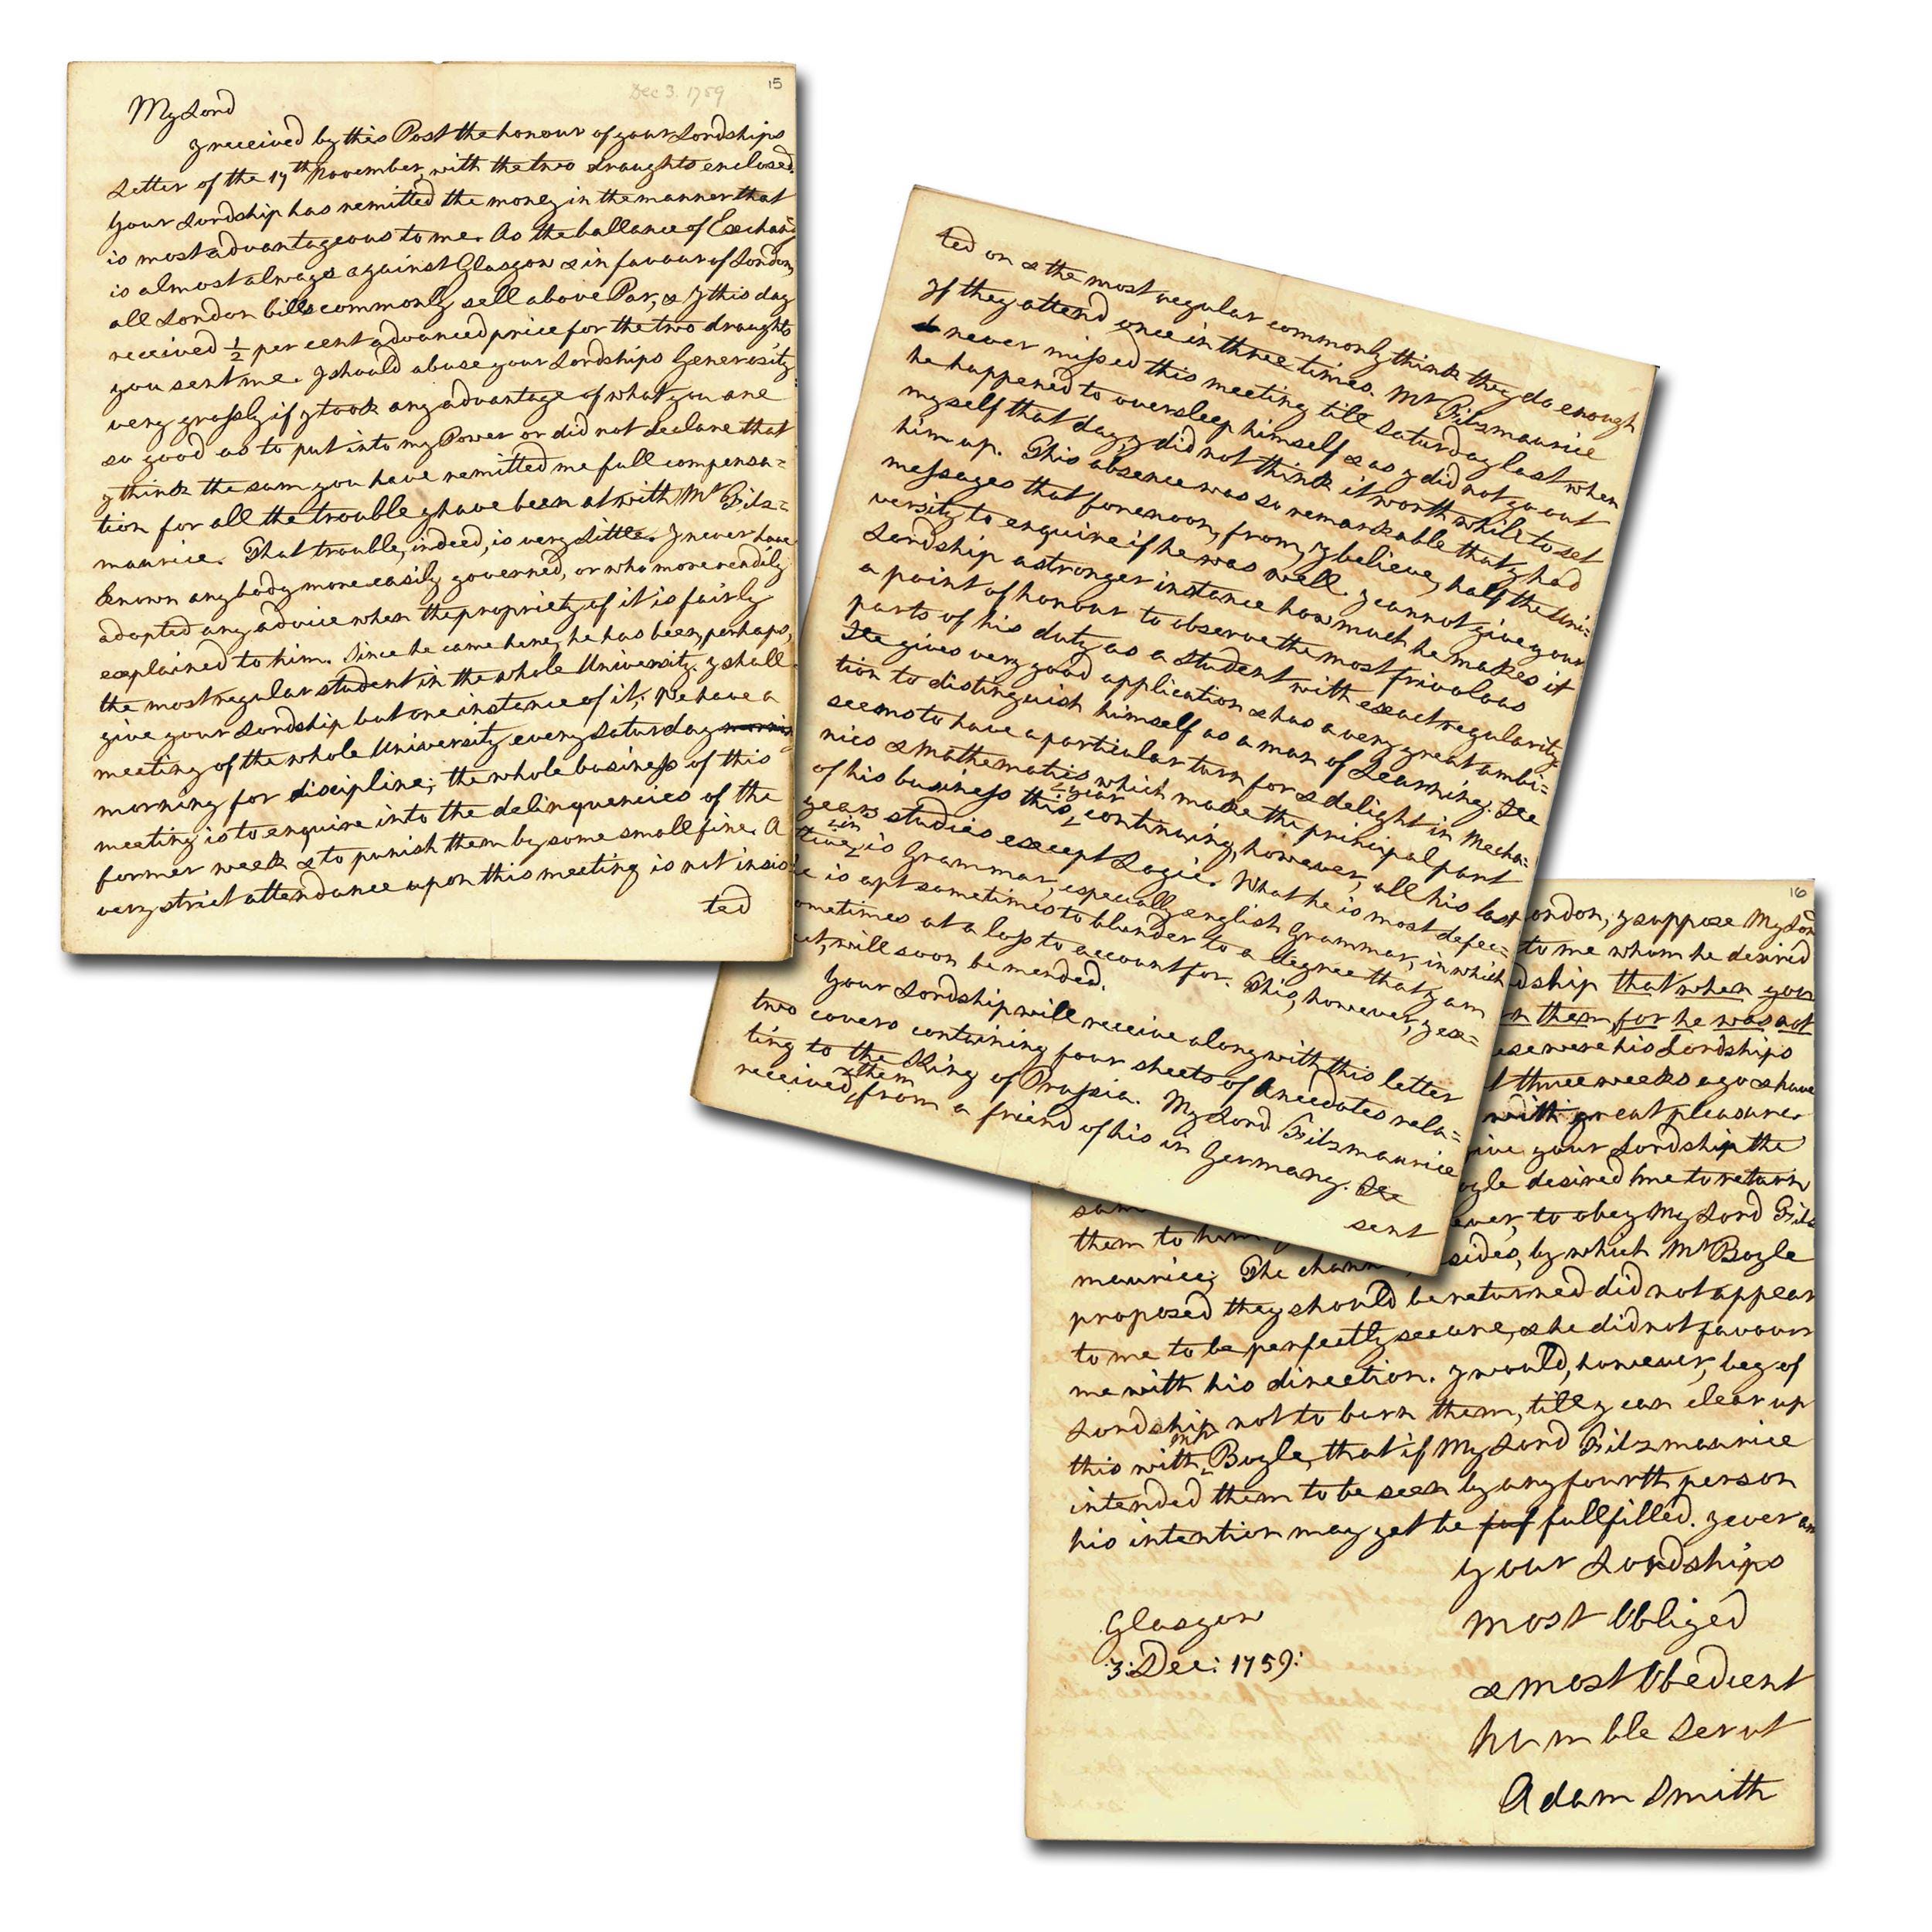 15
Dec 3. 1759
My Lord
I received by this Post the honour of your Lordships
Letter of the 17th November, with the two draughts enclosed.
Your Lordship has remitted the money in the manner that
is most advantageous to me. As the ballance of Exchang
is almost always against Glasgow & in favour of London,
all London bills commonly sell above Par, & I this day
received ½ per cent advanced price for the two draughts
you sent me. I should abuse your Lordships Generosity
very grossly if I took any advantage of what you are
so good as to put into my Power or did not declare that
I think the sum you have remitted me full compensa=
tion for all the trouble I have been at with Mr Fitz=
maurice. That trouble, indeed, is very little. I never have
known anybody more easily governed, or who more readily
adopted any advice when the propriety of it is fairly
explained to him. Since he came here, he has been, perhaps,
the most regular student in the whole University. I shall
give your Lordship but one instance of it; We have a
meeting of the whole University every Saturday mornin
morning for discipline; the whole business of this
meeting is to enquire into the delinquencies of the
former week & to punish them by some small fine. A
very strict attendance upon this meeting is not insis
ted
ted on & the most regular commonly think they do enough
If they attend once in three times. Mr Fitzmaurice
never missed this meeting till Saturday last when
he happened to oversleep himself & as I did not go out
myself that day, I did not think it worth while to set
him up. This absence was so remarkable that I had
messages that forenoon, from, I believe, half the Uni=
versity to enquire if he was well. I cannot give your
Lordship a stronger instance how much he makes it
a point of honour to observe the most frivolous
parts of his duty as a student with exact regularity.
He gives very good application & has a very great ambi=
tion to distinguish himself as a man of Learning. He
seems to have a particular turn for & delight in Mecha=
nics & Mathematics which make the principal part
of his business this year continuing, however, all his last
years studies except Logic. What he is most defec=
tive in is Grammar, especially english Grammar, in which
he is apt sometimes to blunder to a degree that I am
ometimes at a loss to account for. This, however, I ex=
ct, will soon be mended.
Your Lordship will receive along with this letter
two covers containing four sheets of Anecdotes rela=
ting to the King of Prussia. My Lord Fitzmaurice
received them from a friend of his in Germany. He
sent
16
ondon, I suppose My Lord
to me whom he desired
dship that when you
n them for he was not
ese were his Lordships
t three weeks ago & have
with great pleasure.
ive your Lordship the
oyle desired me to return
sam
ever, to obey My Lord Fitz
them to him
sides, by which Mr Boyle
maurice; The chann
proposed they should be returned did not appear
to me to be perfectly secure, & he did not favour
me with his direction. I would, however, beg of
Lordship not to burn them, till I can clear up
this with Mr Boyle, that if My Lord Fitzmaurice
intended them to be seen by any fourth person
his intention may yet be fuf fullfilled. I ever am
your Lordships
most Obliged
& most Obedient
humble Servt
Adam Smith
Glasgow
3: Dec: 1759: